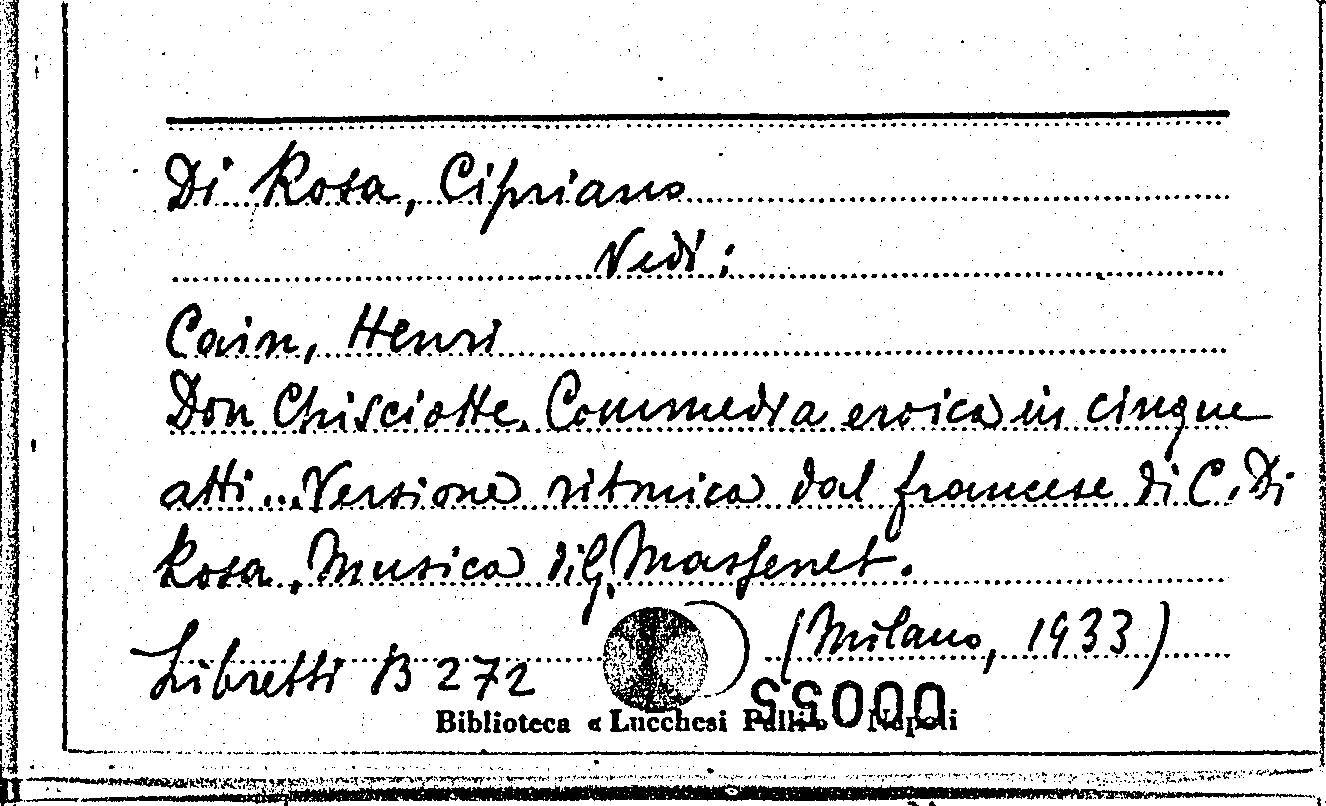 Di Rosa, Cipriano
Vedi:
Cain, Henri
Don Chisciotte. Commedia eroica in cinque
atti... Versione ritmica dal francese di C. Di
Rosa. Musica di G. Massenet.
(Milano, 1933)
Libretti B 272
55000
Biblioteca « Lucchesi Palli » Napoli